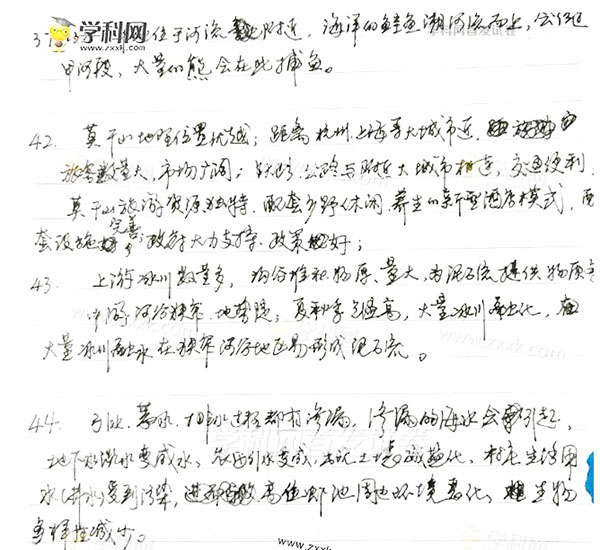 学科网
www.zxxk.com
37 位于河流 附近，海洋的鲑鱼溯河流而上，会经过
甲河段，大量的熊会在此捕鱼。
42. 莫干山地理位置优越；距离杭州.上海等大城市近，
旅客数量大，市场广阔；铁路.公路与附近大城市相连，交通便利
莫干山旅游资源独特，配套乡野休闲.养生的新型酒店模式，配
套设施完善；政府大力支持，政策好；
43. 上游冰川数量多，沟谷堆积物厚、量大，为泥石流提供物质
中游河谷狭窄，地势陡；夏秋季气温高，大量冰川融化，
大量冰川融水在狭窄河谷地区易形成泥石流。
44. 引水、蓄水、 过程都有渗漏，渗漏的海水会引起，
地下水淡水变成水，农田引水变咸，出现土壤盐碱化、村庄生活用
水(井水)受到污染， 高位虾池周边环境恶化、生物
多样性减少。
www.zxxk